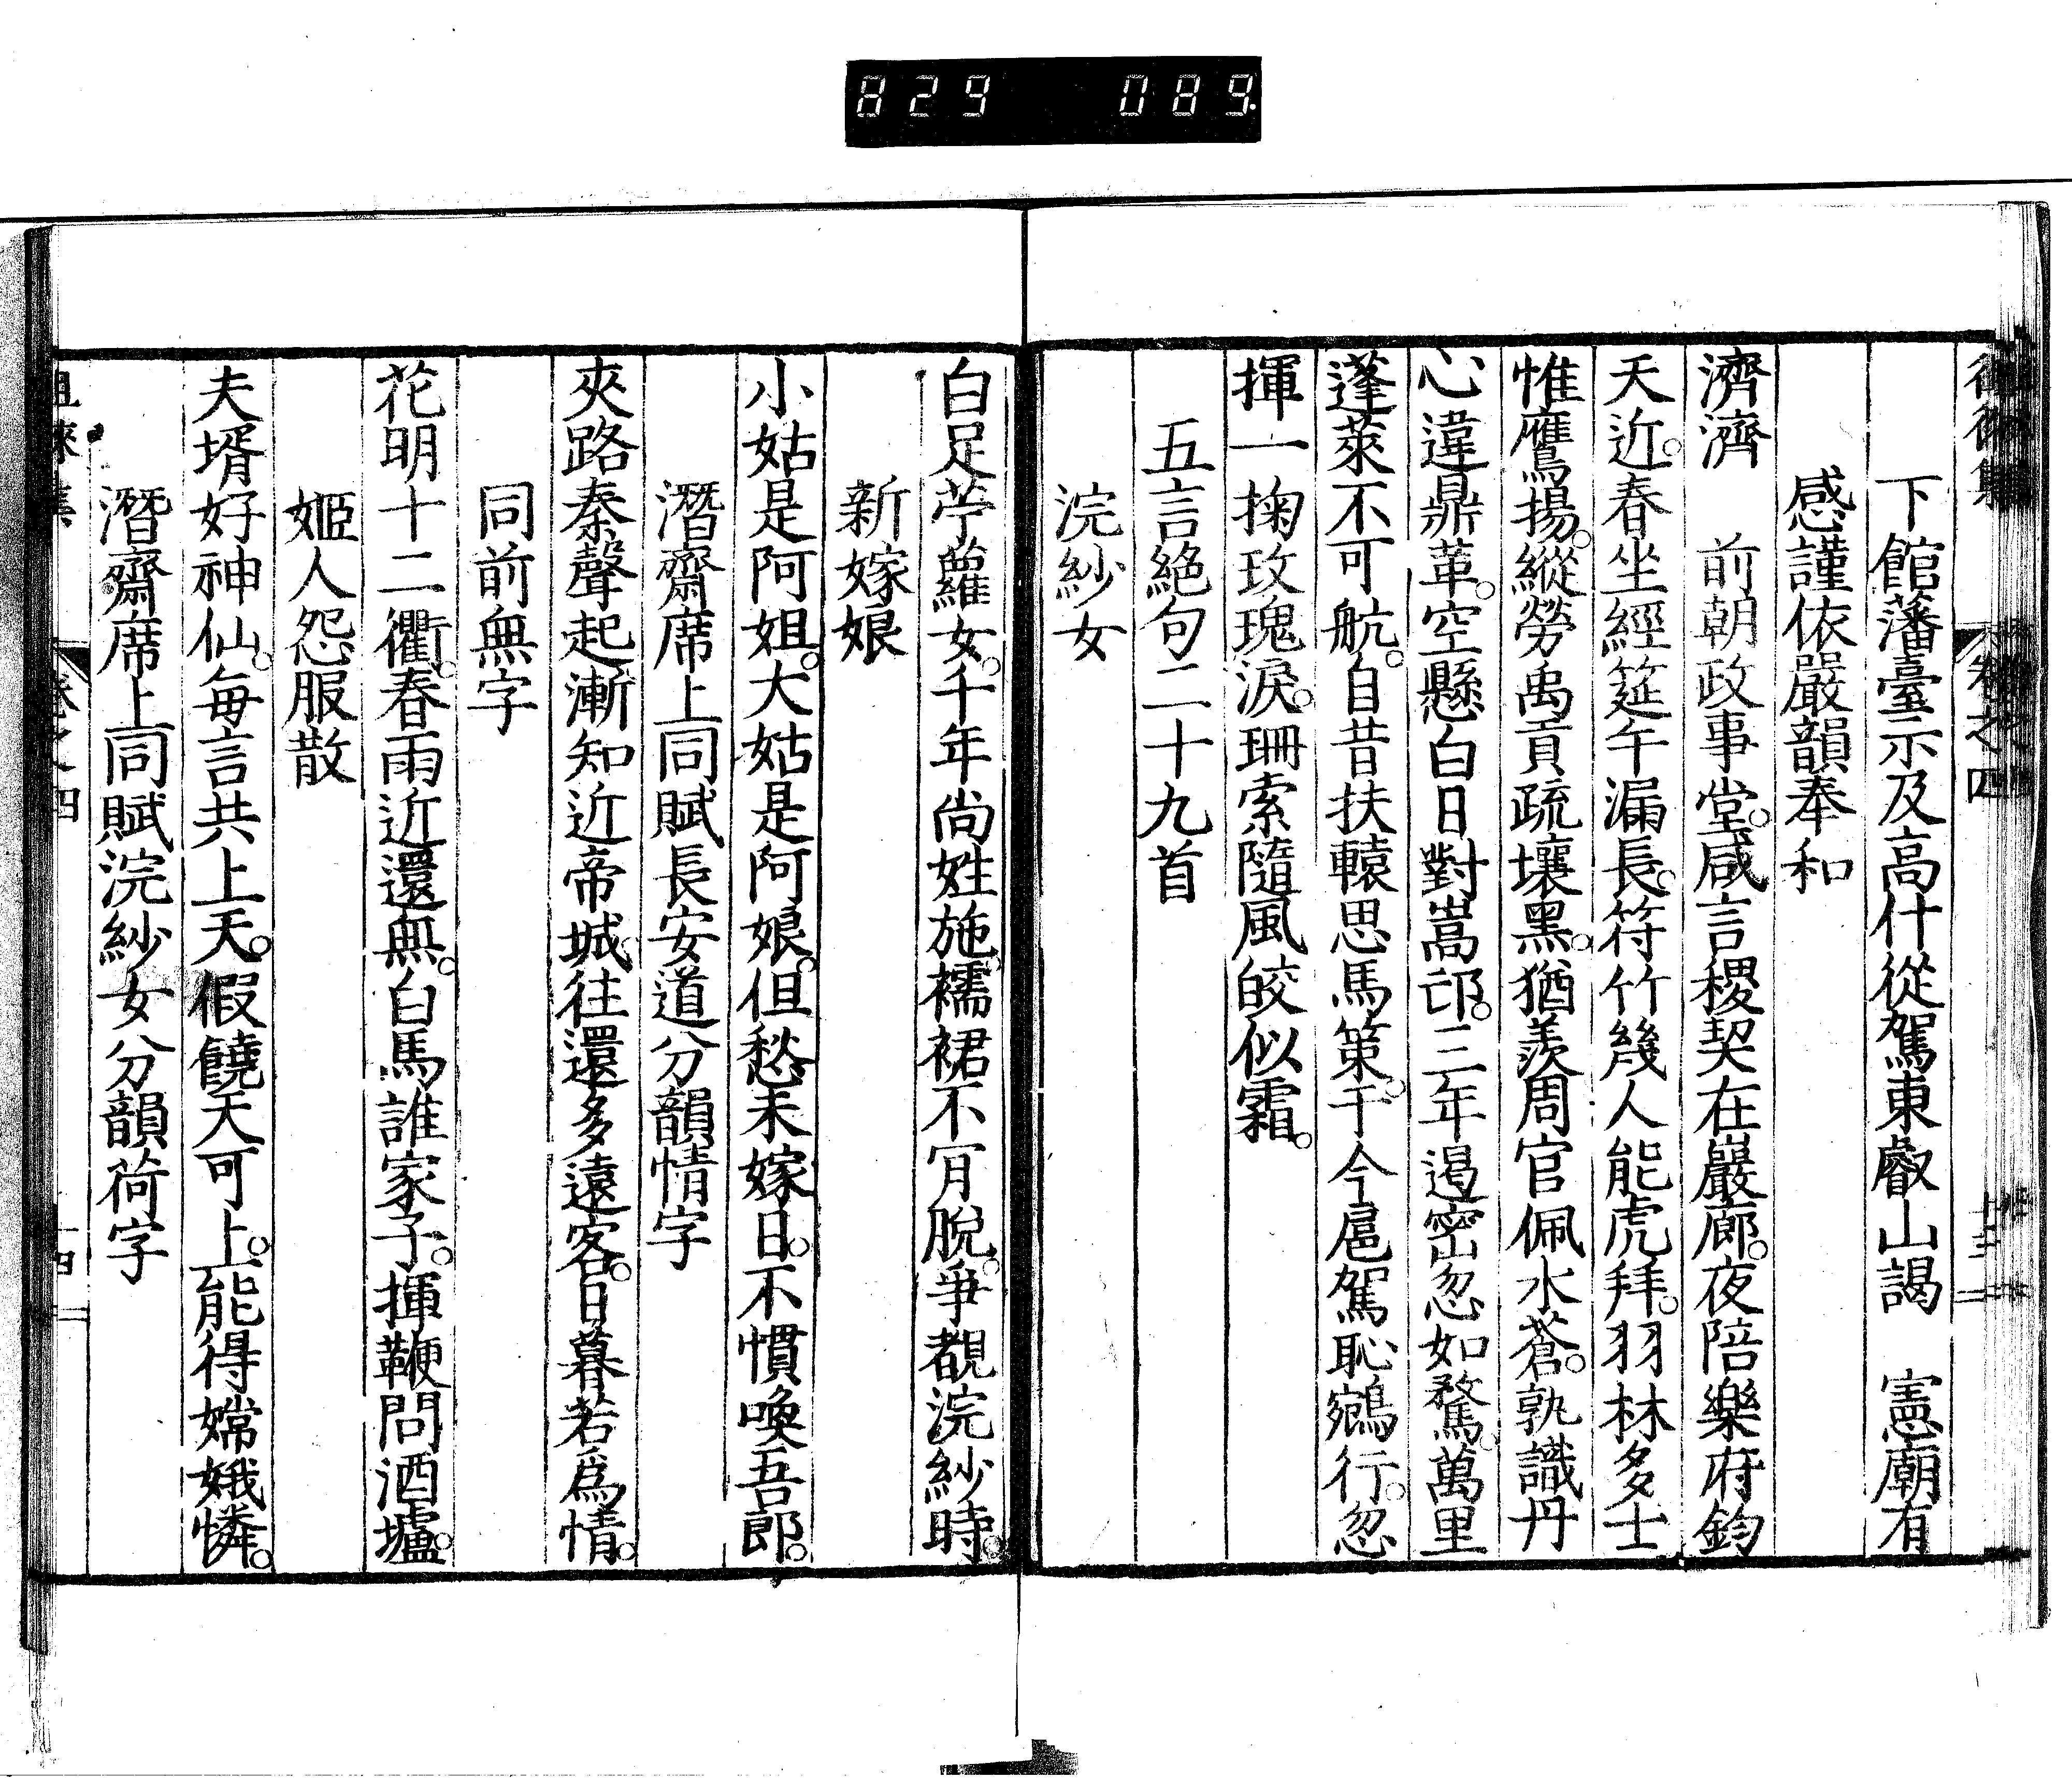 829 089
下館藩臺示及高什從駕東叡山謁　憲廟有
感謹依嚴韻奉和
濟濟　前朝政事堂。咸言稷契在巖廊。夜陪樂府鈞
天近。春坐經筵午漏長。符竹幾人能虎拜。羽林多士
惟鷹揚。縱勞禹貢疏壤黑。猶羨周官佩水蒼。孰識丹
心違鼎革。空懸白日對嵩邙。三年遏密忽如騖。萬里
蓬萊不可航。自昔扶轅思馬策。于今扈駕恥鵷行。忽
揮一掬玫瑰淚。珊索隨風皎似霜。
五言絕句二十九首
浣紗女
白足苧蘿女。千年尚姓施。襦裙不肎脫。爭覩浣紗時。
新嫁娘
小姑是阿姐。大姑是阿娘。但愁未嫁日。不慣喚吾郎。
潛齋席上同賦長安道分韻情字
夾路秦聲起。漸知近帝城。往還多遠客。日暮若爲情。
同前無字
花明十二衢。春雨近還無。白馬誰家子。揮鞭問酒壚。
姬人怨服散
夫壻好神仙。每言共上天。假饒天可上。能得嫦娥憐。
潛齋席上同賦浣紗女分韻荷字
徂徠集　卷之四　十四